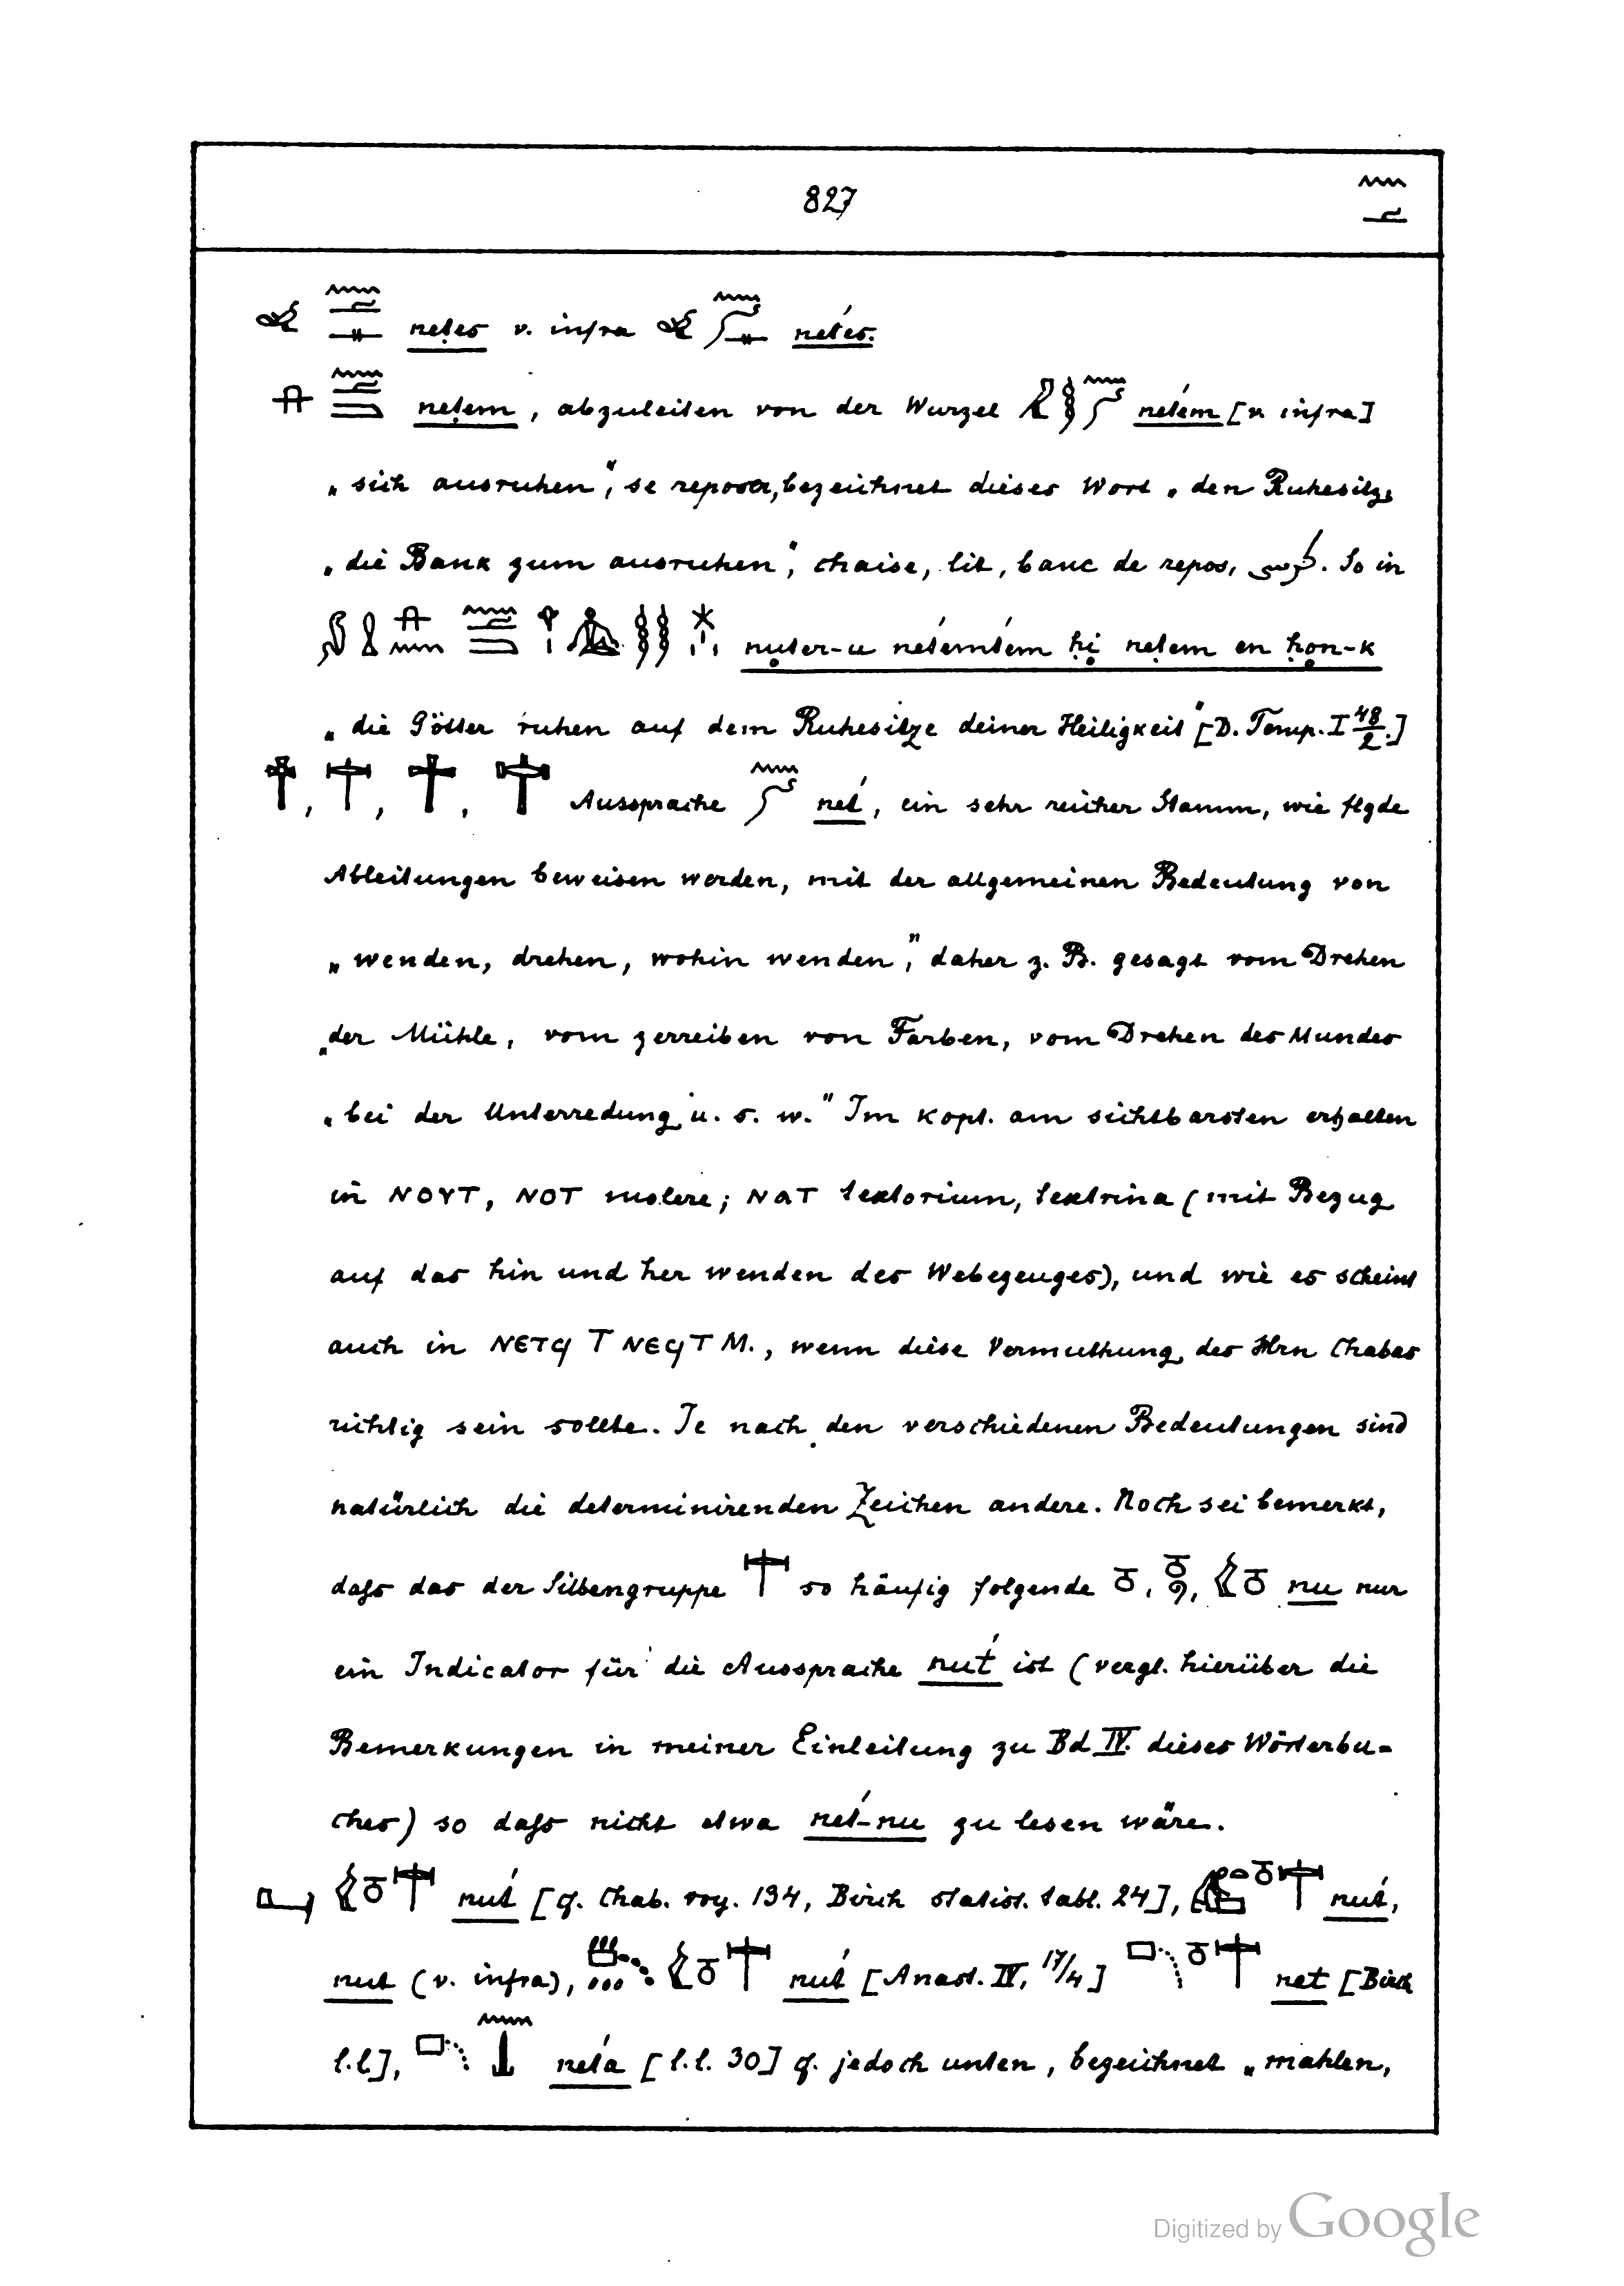 827
neṭes v. infra neťes.
neṭem, abzuleiten von der Wurzel neťem [v. infra]
„sich ausruhen“, se reposer, bezeichnet dieses Wort „den Ruhesitz,
„die Bank zum ausruhen“, chaise, lit, banc de repos, كرسى. So in
nuter-u neťemťem ḥi neṭem en ḥon-k
„die Götter ruhen auf dem Ruhesitze deiner Heiligkeit“ [D. Temp. I 48/2.]
, , , Aussprache neť, ein sehr reicher Stamm, wie flgde
Ableitungen beweisen werden, mit der allgemeinen Bedeutung von
„wenden, drehen, wohin wenden“, daher z. B. gesagt vom Drehen
„der Mühle, vom zerreiben von Farben, vom Drehen des Mundes
„bei der Unterredung u. s. w.“ Im kopt. am sichtbarsten erhalten
in ⲛⲟⲩⲧ, ⲛⲟⲧ molere; ⲛⲁⲧ textorium, textrina (mit Bezug
auf das hin und her wenden des Webezeuges), und wie es scheint
auch in ⲛⲉⲧϥ T ⲛⲉϥⲧ M., wenn diese Vermuthung des Hrn Chabas
richtig sein sollte. Je nach den verschiedenen Bedeutungen sind
natürlich die determinirenden Zeichen andere. Noch sei bemerkt,
daſs das der Silbengruppe so häufig folgende , , nu nur
ein Indicator für die Aussprache nuť ist (vergl. hierüber die
Bemerkungen in meiner Einleitung zu Bd IV. dieses Wörterbu-
ches) so daſs nicht etwa neť-nu zu lesen wäre.
nuť [cf. Chab. voy. 134, Birch statist. tabl. 24], nuť,
nut (v. infra), nuť [Anast. IV, 17/4] net [Birch
l.l], neťa [l.l. 30] cf. jedoch unten, bezeichnet „mahlen,
Digitized by Google